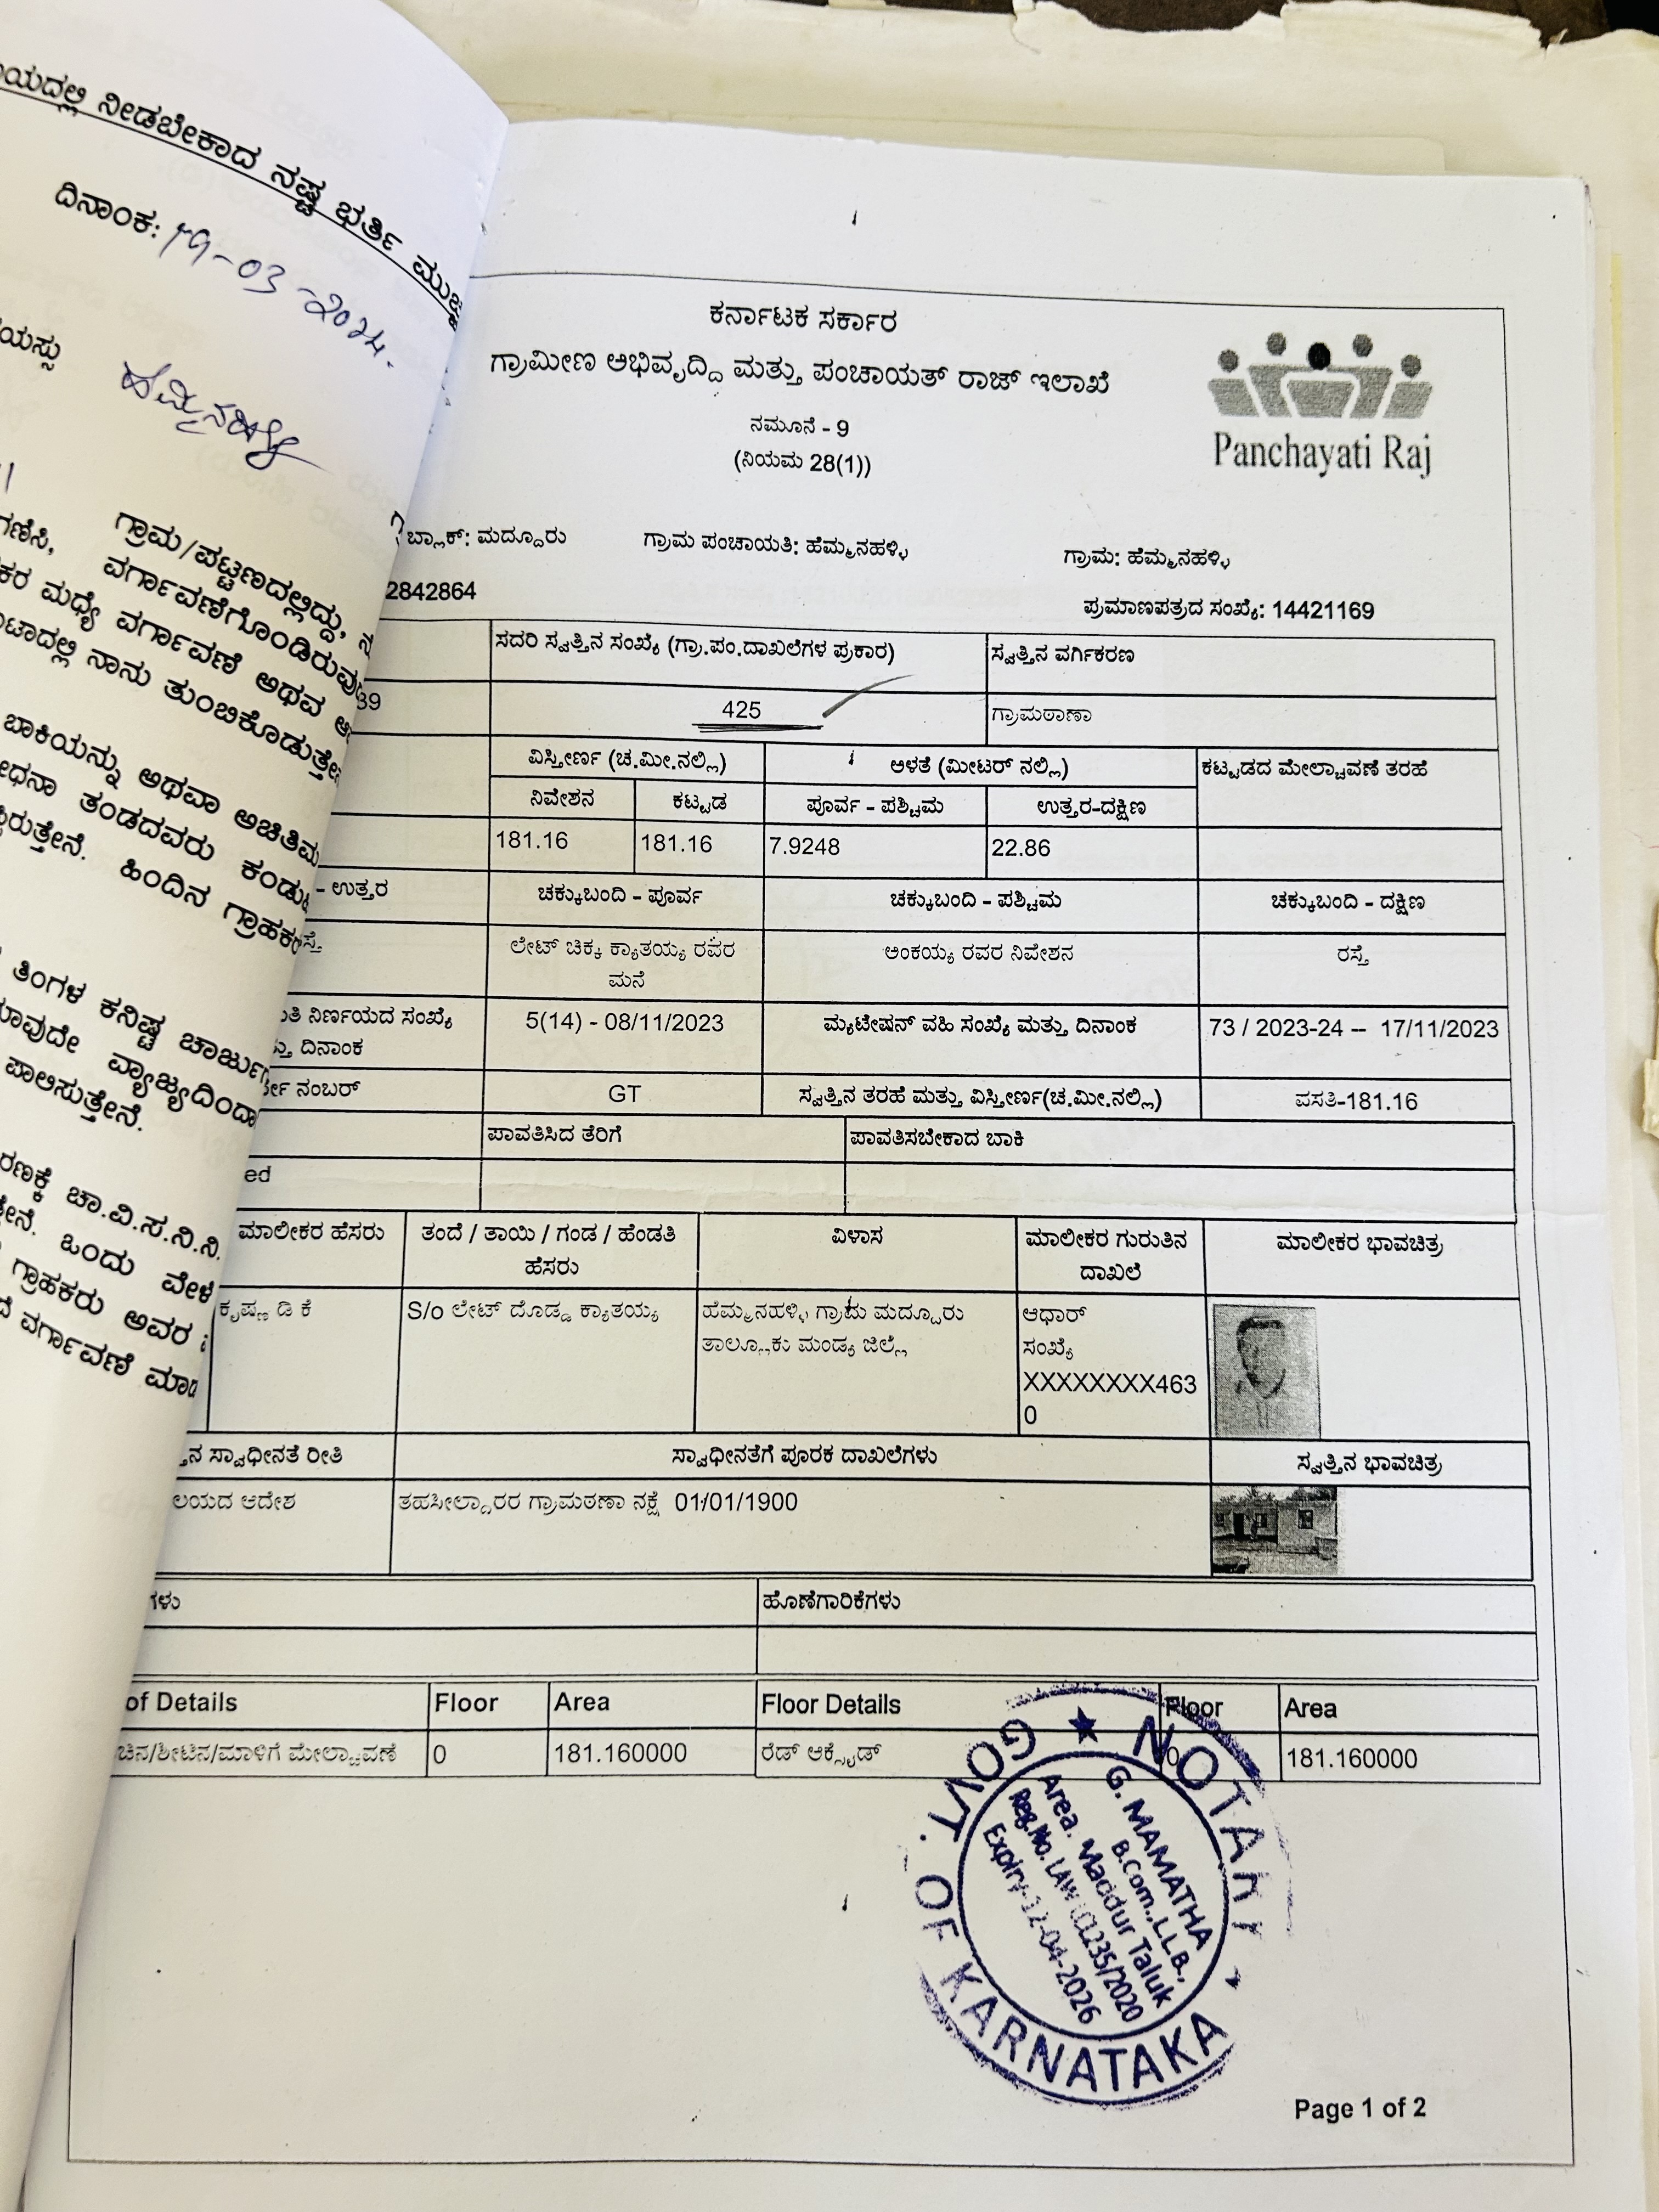 ನೀಡಬೇಕಾದ ನಷ್ಟ ಭರ್ತಿ
ದಿನಾಂಕ: 19-03-2024.
ಹೆಮ್ಮನಹಳ್ಳಿ
ಗ್ರಾಮ/ಪಟ್ಟಣದಲ್ಲಿದ್ದು,
ವರ್ಗಾವಣೆಗೊಂಡಿರುವು
ಮಧ್ಯೆ ವರ್ಗಾವಣೆ ಅಥವ
ನಾನು ತುಂಬಿಕೊಡುತ್ತೇ
ಬಾಕಿಯನ್ನು ಅಥವಾ
ತಂಡದವರು ಕಂಡು
ಹಿಂದಿನ ಗ್ರಾಹಕ
ತಿಂಗಳ ಕನಿಷ್ಟ
ವ್ಯಾಜ್ಯದಿಂದಾ
ಪಾಲಿಸುತ್ತೇನೆ.
ಚಾ.ವಿ.ಸ.ನಿ.ನಿ.
ಒಂದು ವೇಳೆ
ಗ್ರಾಹಕರು ಅವರ
ವರ್ಗಾವಣೆ ಮಾಡ
ಕರ್ನಾಟಕ ಸರ್ಕಾರ
ಗ್ರಾಮೀಣ ಅಭಿವೃದ್ದಿ ಮತ್ತು ಪಂಚಾಯತ್ ರಾಜ್ ಇಲಾಖೆ
Panchayati Raj
ನಮೂನೆ - 9
(ನಿಯಮ 28(1))
ಬ್ಲಾಕ್: ಮದ್ದೂರು ಗ್ರಾಮ ಪಂಚಾಯತಿ: ಹೆಮ್ಮನಹಳ್ಳಿ ಗ್ರಾಮ: ಹೆಮ್ಮನಹಳ್ಳಿ
2842864 ಪ್ರಮಾಣಪತ್ರದ ಸಂಖ್ಯೆ: 14421169
ಸದರಿ ಸ್ವತ್ತಿನ ಸಂಖ್ಯೆ (ಗ್ರಾ.ಪಂ.ದಾಖಲೆಗಳ ಪ್ರಕಾರ) ಸ್ವತ್ತಿನ ವರ್ಗಿಕರಣ
39 425 ಗ್ರಾಮಠಾಣಾ
ವಿಸ್ತೀರ್ಣ (ಚ.ಮೀ.ನಲ್ಲಿ) ಅಳತೆ (ಮೀಟರ್ ನಲ್ಲಿ) ಕಟ್ಟಡದ ಮೇಲ್ಚಾವಣೆ ತರಹೆ
ನಿವೇಶನ ಕಟ್ಟಡ ಪೂರ್ವ - ಪಶ್ಚಿಮ ಉತ್ತರ-ದಕ್ಷಿಣ
181.16 181.16 7.9248 22.86
- ಉತ್ತರ ಚಕ್ಕುಬಂದಿ - ಪೂರ್ವ ಚಕ್ಕುಬಂದಿ - ಪಶ್ಚಿಮ ಚಕ್ಕುಬಂದಿ - ದಕ್ಷಿಣ
ಲೇಟ್ ಚಿಕ್ಕ ಕ್ಯಾತಯ್ಯ ರವರ ಅಂಕಯ್ಯ ರವರ ನಿವೇಶನ ರಸ್ತೆ
ಮನೆ
ನಿರ್ಣಯದ ಸಂಖ್ಯೆ 5(14) - 08/11/2023 ಮ್ಯಟೇಷನ್ ವಹಿ ಸಂಖ್ಯೆ ಮತ್ತು ದಿನಾಂಕ 73 / 2023-24 -- 17/11/2023
ದಿನಾಂಕ
ನಂಬರ್ GT ಸ್ವತ್ತಿನ ತರಹೆ ಮತ್ತು ವಿಸ್ತೀರ್ಣ(ಚ.ಮೀ.ನಲ್ಲಿ) ವಸತಿ-181.16
ಪಾವತಿಸಿದ ತೆರಿಗೆ ಪಾವತಿಸಬೇಕಾದ ಬಾಕಿ
ed
ಮಾಲೀಕರ ಹೆಸರು ತಂದೆ / ತಾಯಿ / ಗಂಡ / ಹೆಂಡತಿ ವಿಳಾಸ ಮಾಲೀಕರ ಗುರುತಿನ ಮಾಲೀಕರ ಭಾವಚಿತ್ರ
ಹೆಸರು ದಾಖಲೆ
ಕೃಷ್ಣ ಡಿ ಕೆ S/o ಲೇಟ್ ದೊಡ್ಡ ಕ್ಯಾತಯ್ಯ ಹೆಮ್ಮನಹಳ್ಳಿ ಗ್ರಾಮ ಮದ್ದೂರು ಆಧಾರ್
ತಾಲ್ಲೂಕು ಮಂಡ್ಯ ಜಿಲ್ಲೆ ಸಂಖ್ಯೆ
XXXXXXXX463
0
ಸ್ವಾಧೀನತೆ ರೀತಿ ಸ್ವಾಧೀನತೆಗೆ ಪೂರಕ ದಾಖಲೆಗಳು ಸ್ವತ್ತಿನ ಭಾವಚಿತ್ರ
ಲಯದ ಆದೇಶ ತಹಸೀಲ್ದಾರರ ಗ್ರಾಮಠಣಾ ನಕ್ಷೆ 01/01/1900
ಗಳು ಹೊಣೆಗಾರಿಕೆಗಳು
of Details Floor Area Floor Details Floor Area
ಚಿನ/ಶೀಟಿನ/ಮಾಳಿಗೆ ಮೇಲ್ಚಾವಣೆ 0 181.160000 ರೆಡ್ ಆಕ್ಸೈಡ್ 0 181.160000
NOTARY
GOVT. OF KARNATAKA
G. MAMATHA
B.Com.,L.L.B.,
Area. Maddur Taluk
Reg.No. LAW
Expiry-12-04-2026
Page 1 of 2